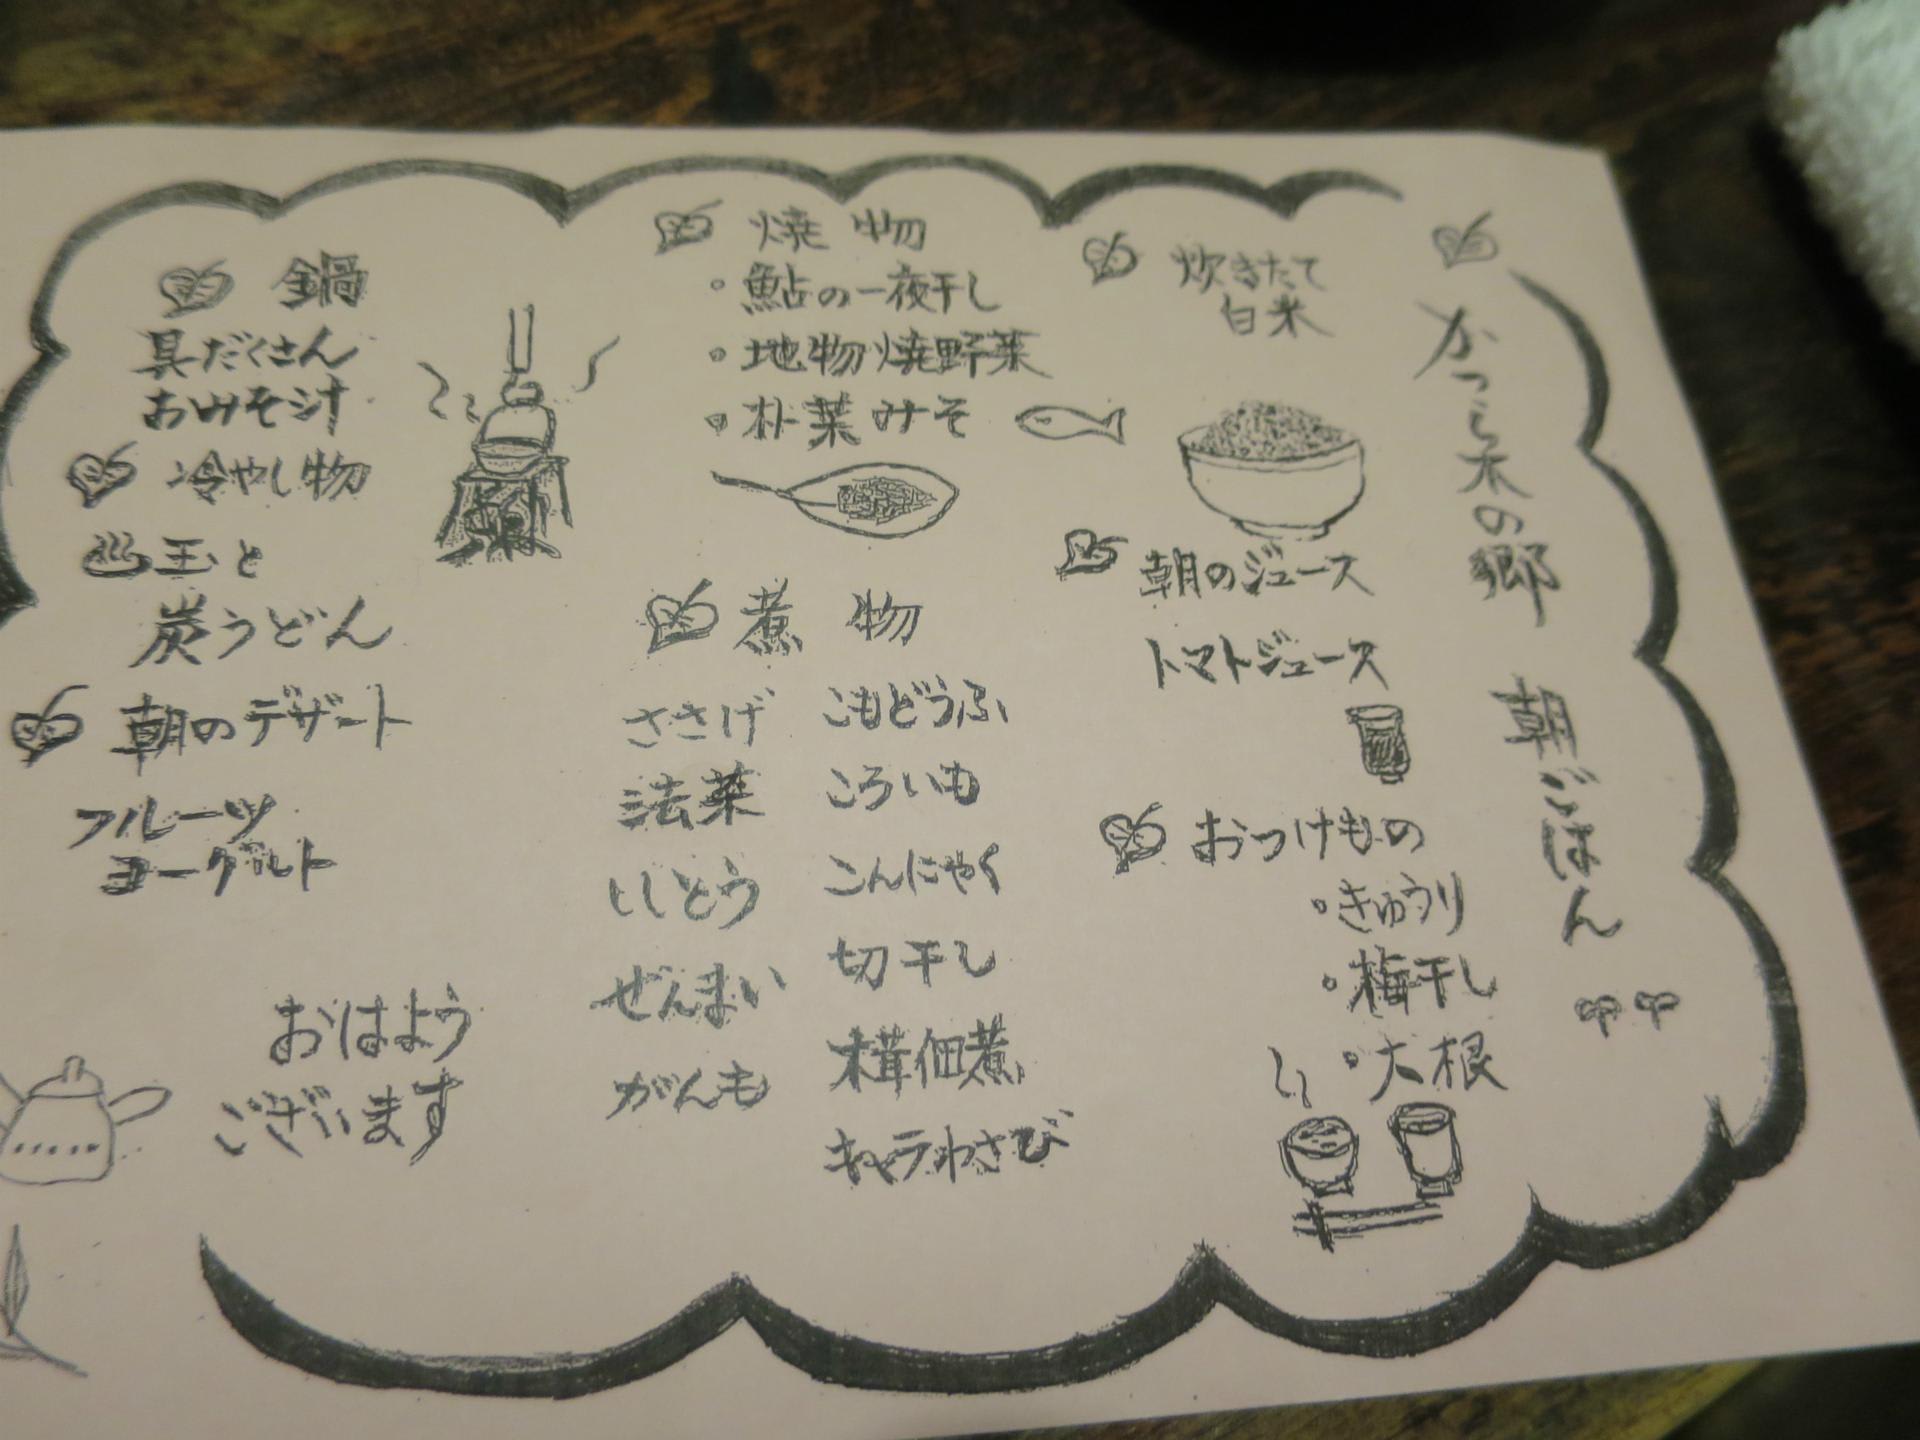 かつら木の郷 朝ごはん
炊きたて
白米
朝のジュース
トマトジュース
おつけもの
・きゅうり
・梅干し
・大根
焼物
・鮎の一夜干し
・地物焼野菜
・朴葉みそ
煮物
こもどうふ
ころいも
こんにゃく
切干し
茸佃煮
キャラわさび
ささげ
法蓮
ししとう
ぜんまい
がんも
鍋
具だくさん
おみそ汁
冷やし物
♨玉と
炭うどん
朝のデザート
フルーツ
ヨーグルト
おはよう
ございます